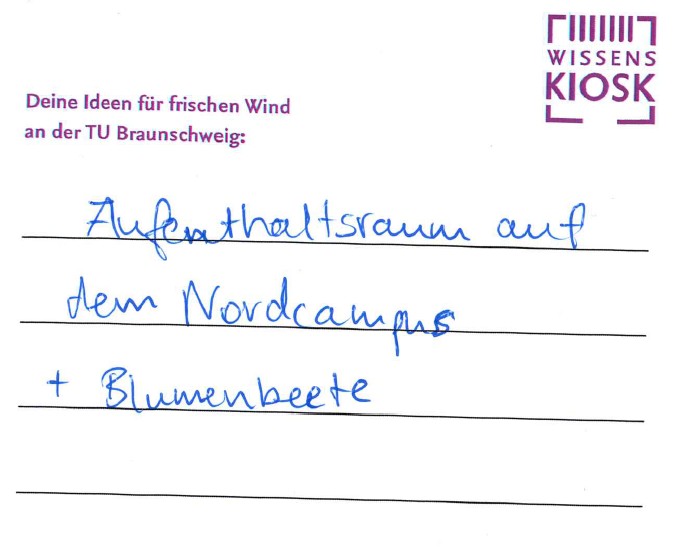 WISSENS
KIOSK
Deine Ideen für frischen Wind
an der TU Braunschweig:
Aufenthaltsraum auf
dem Nordcampus
+ Blumenbeete